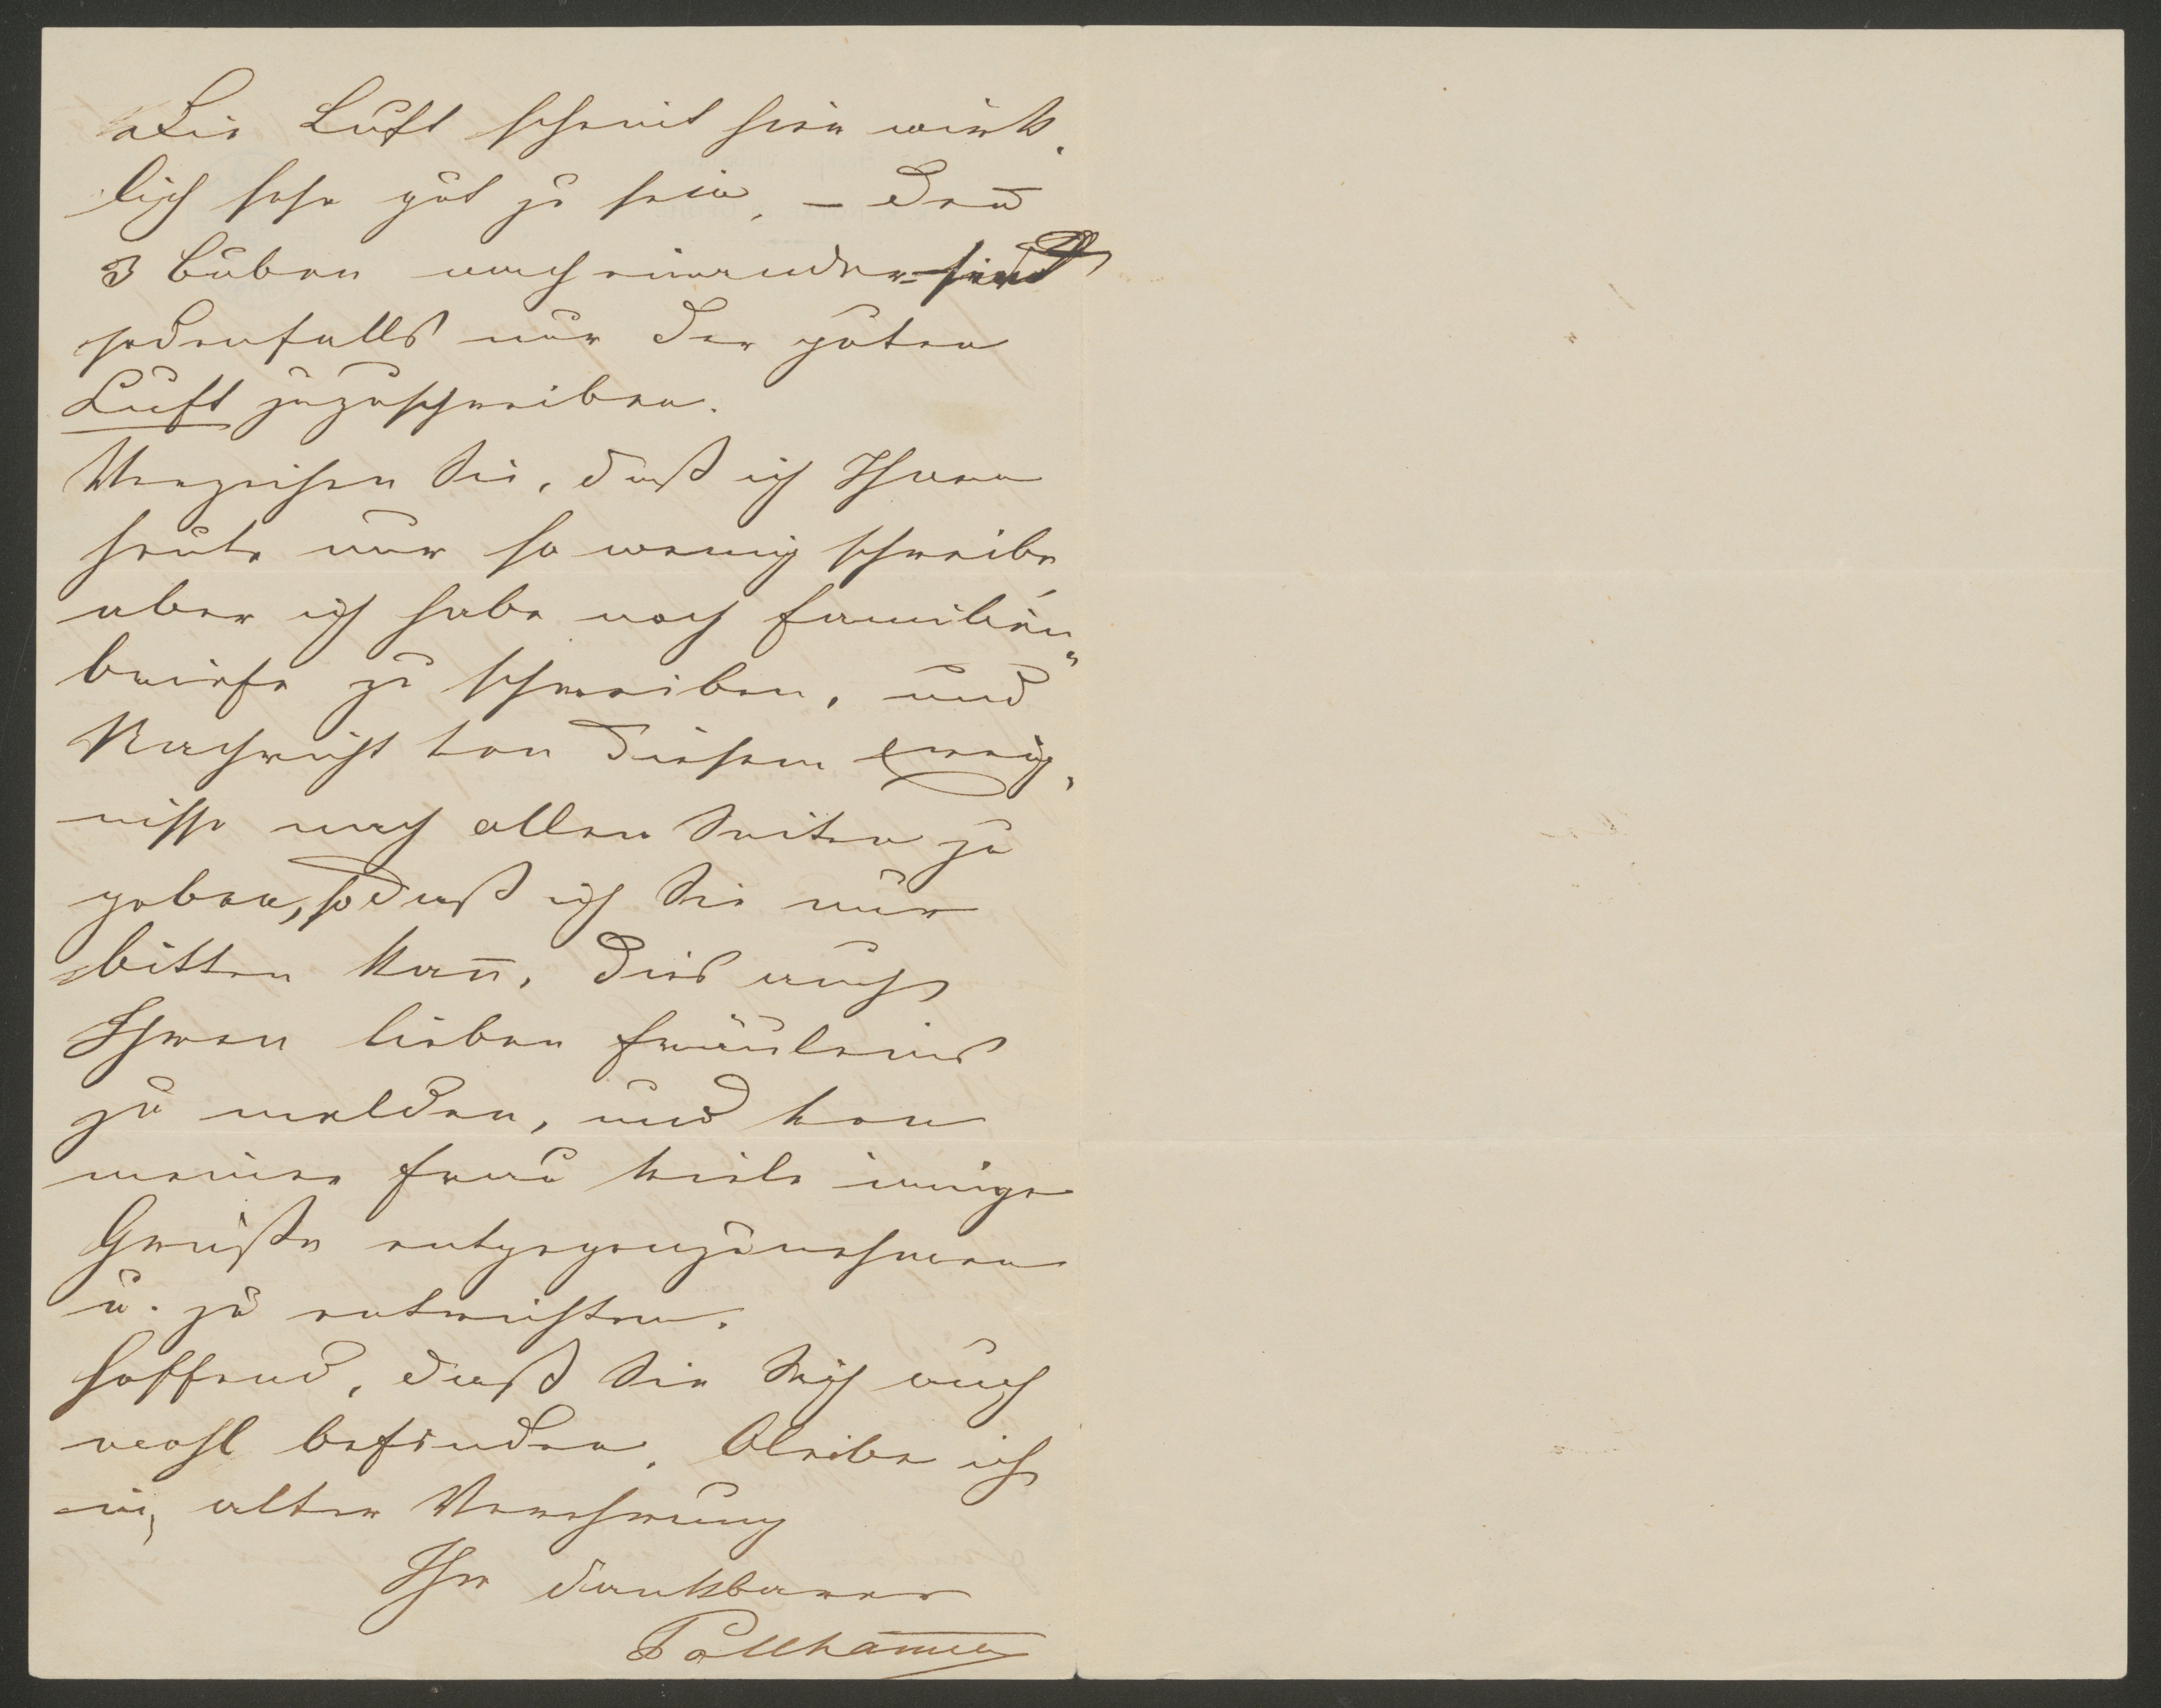 Die Luft scheint hier wirk-
lich sehr gut zu sein, – den̄
3 Buben nach einander sind
jedenfalls nur der guten
Luft zuzuschreiben.
Verzeihen Sie, daß ich Ihnen
heute nur so wenig schreibe,
aber ich habe noch Familien-
briefe zu schreiben, und
Nachricht von diesem Ereig-
nisse nach allen Seiten zu
geben, so daß ich Sie nur
bitten kan̄, dies auch
Ihren lieben Fräuleins
zu melden, und von
meiner Frau viele innige
Grüße entgegenzunehmen
u. zu entrichten.
Hoffend, daß Sie Sich auch
wohl befinden, bleibe ich
in alter Verehrung
Ihr dankbarer